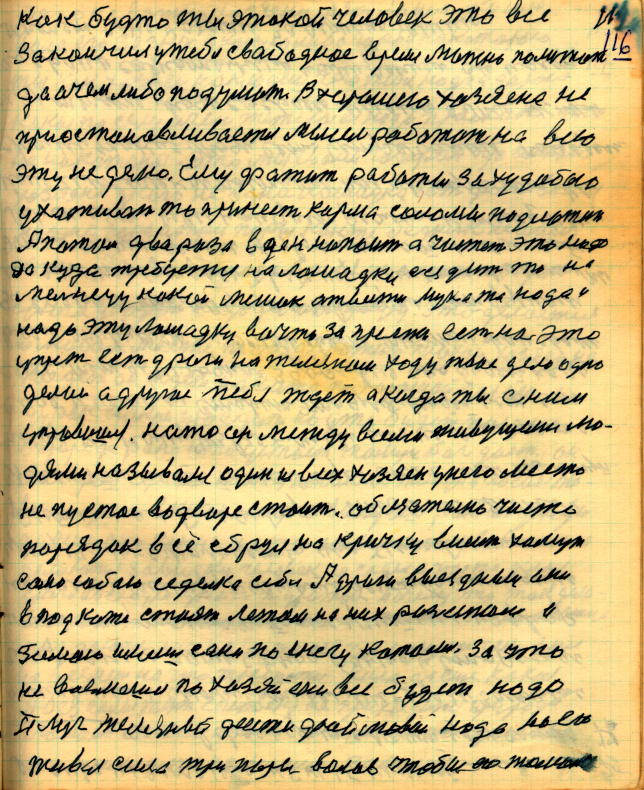 116
как будто ты этакой человек это все
закончил у тебя свабодное время можно полутчит
да а чем либо подумат. В харошего хозяена не
приостонавливается мысел работат на всю
эту неделю. Ему фатит работы за худобою
ухаживат то принест карма соломы подлажит
А патом два раза в ден напоит а чистет это надо
да куда требуется на лошадки ехат то на
мелнецу какой мешок отвести мука та нада и
надо эту лошадку во что запреч сетна это
ест дроги на железном ходу такое дело одно
делаи а другое тебя ждет а когда ты с ним
управился. на то ср между всеми живущеми лю-
дями называлс один из всех хозяен у него место
не пустое во дворе стоит. обязателно чисто
порядок в её збруя на крючку висит хамут
само собою седелка себя А дроги выездные они
в подкате стоят летом на них разежаеш и
зимаю сани по снегу катали. За что
не возмеш по хозяйски все будет надо
Плуг железный десети дюймовай нада к нему
живая сила три пары валов чтобы